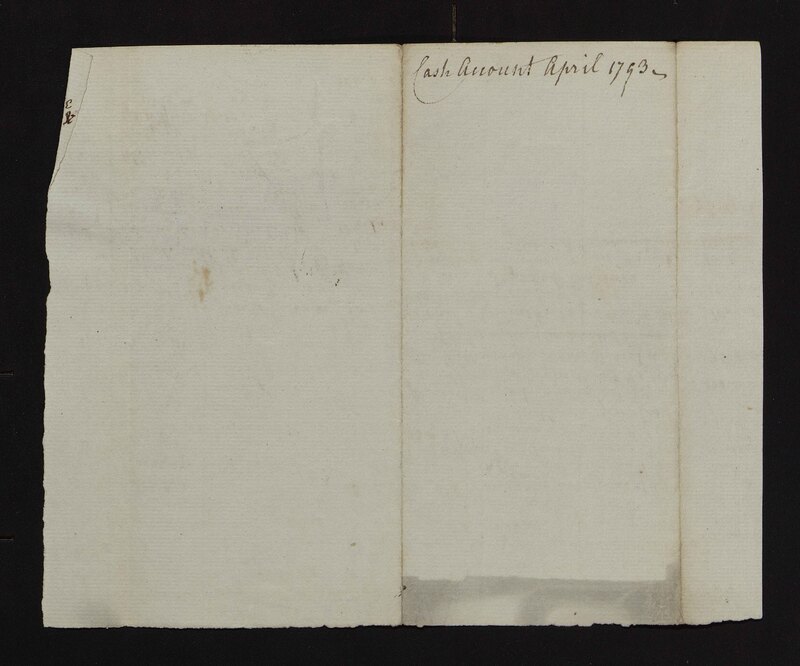 Cash Account April 1793